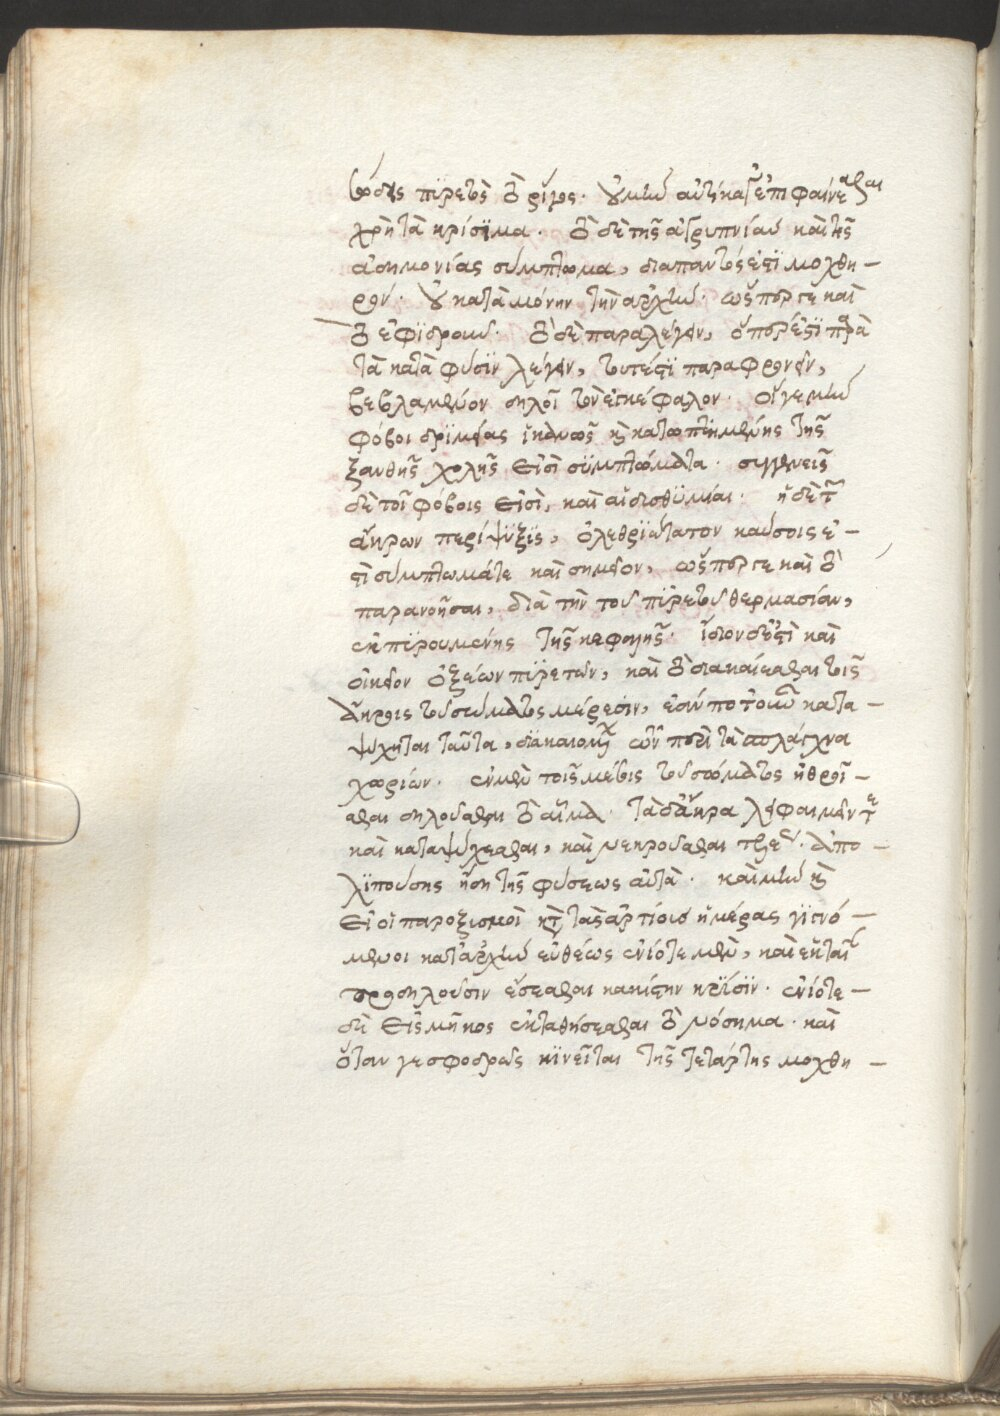 καύσοις πυρετὸς τὸ ῥῖγος. οὐ μὴν αὐτίκα γε ἐπιφαίνεσθαι
χρὴ τὰ κρίσιμα. τὸ δὲ τῆς ἀγρυπνίας καὶ τῆς
ἀσημονίας σύμπτωμα, διαπαντός ἐστι μοχθη-
ρόν. οὐ κατὰ μόνην τὴν ἀρχήν. ὥσπερ γε καὶ
τὸ ἐφιδροῦν. τὸ δὲ παραλέγειν, ὅπερ ἐστὶ παρὰ
τὰ κατὰ φύσιν λέγειν, τουτέστι παραφρονεῖν,
βεβλαμμένον δηλοῖ τὸν ἐγκέφαλον. οἵ γε μὴν
φόβοι δριμείας ἱκανῶς καὶ κατωπτημένης τῆς
ξανθῆς χολῆς εἰσὶ συμπτώματα. συγγενεῖς
δὲ τοῖς φόβοις εἰσὶ, καὶ αἱ δυσθυμίαι. ἡ δὲ τῶν
ἄκρων περίψυξις, ὀλεθριώτατον καύσοις ἐ-
στὶ σύμπτωμά τε καὶ σημεῖον, ὥσπερ γε καὶ τὸ
παρανοῆσαι, διὰ τὴν τοῦ πυρετοῦ θερμασίαν,
ἐκπυρουμένης τῆς κεφαλῆς. ἴδιον δέ ἐστι καὶ
οἰκεῖον ὀξέων πυρετῶν, καὶ τὸ διακαίεσθαι τοῖς
ἄκροις τοῦ σώματος μέρεσιν, ἐὰν ποτ' οὖν κατα-
ψύχηται ταῦτα, διακαιομένων τῶν περὶ τὰ σπλάγχνα
χωρίων. ἐν μὲν τοῖς μέσοις τοῦ σώματος ἠθροῖ-
σθαι δηλοῦσθαι τὸ αἷμα. τὰ δ' ἄκρα λείφαιμεῖν τε
καὶ καταψύχεσθαι, καὶ νεκροῦσθαι ἀπο-
λιπούσης ἤδη τῆς φύσεως αὐτά. καὶ μὴν καὶ
εἰ οἱ παροξυσμοὶ κατὰ τὰς ἀρτίους ἡμέρας γινό-
μενοι κατ' ἀρχὴν εὐθέως ἐνίοτε μὲν, κακήν τινα
προδηλοῦσιν ἔσεσθαι κακίστην κρίσιν. ἐνίοτε
δὲ εἰς μῆκος ἐκταθήσεσθαι τὸ νόσημα. καὶ
ὅταν γε σφοδρῶς κινεῖται τῆς τετάρτης μοχθη-